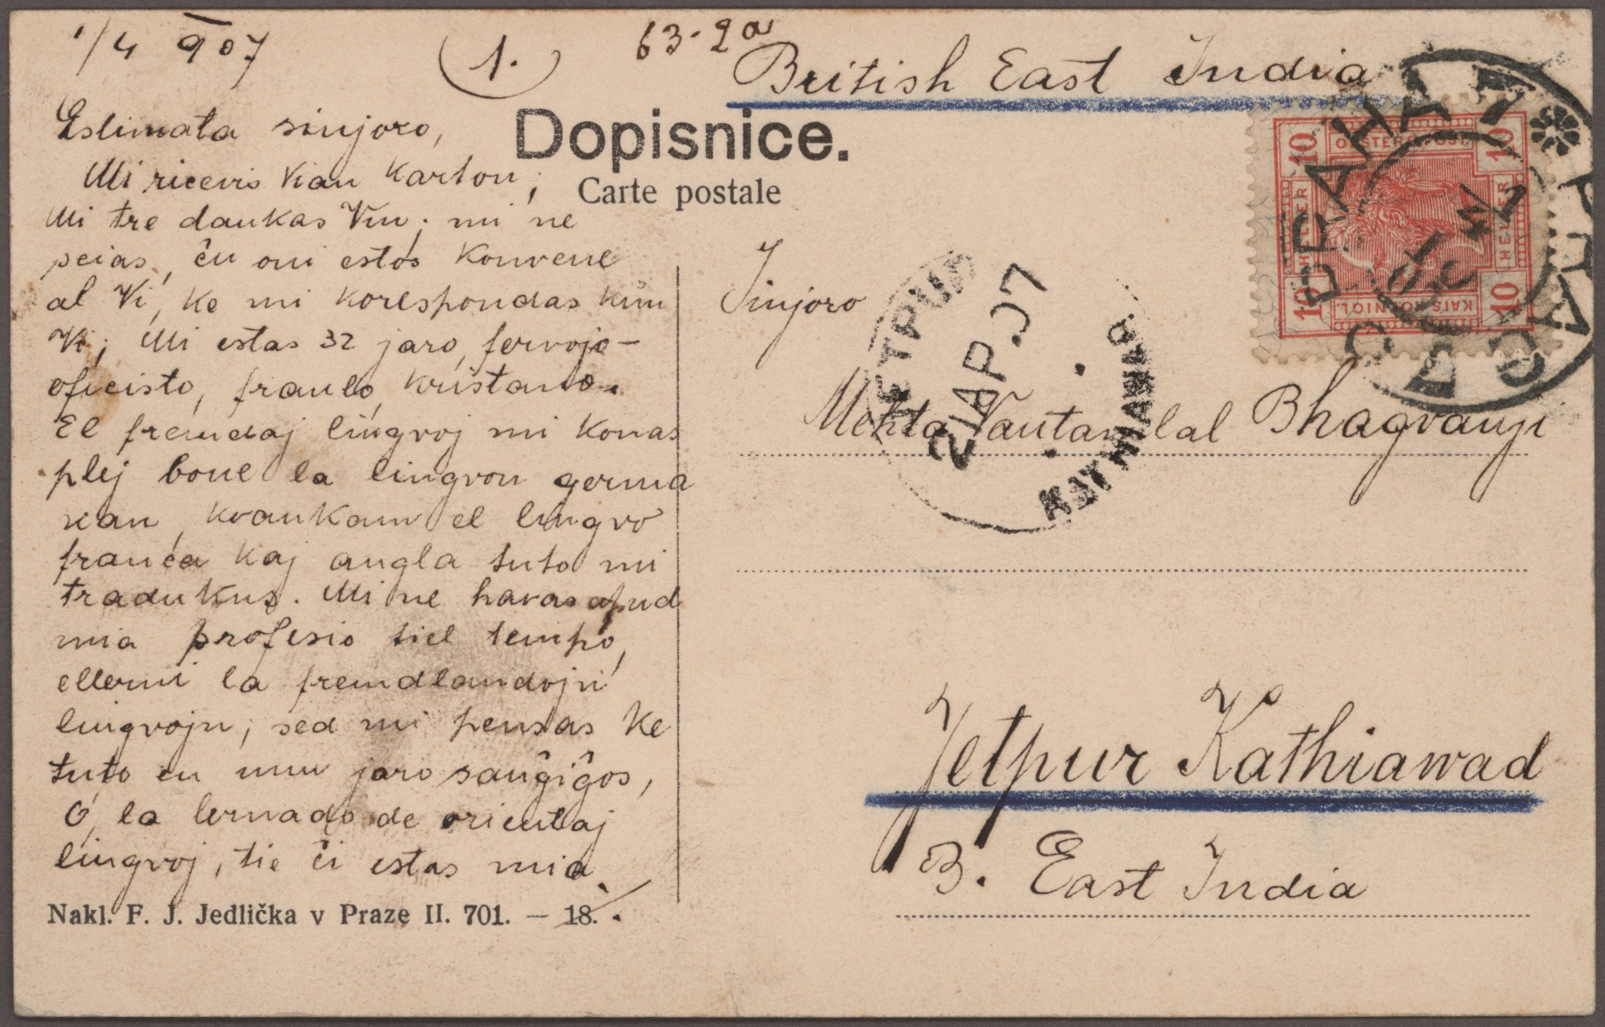 1/4 907
(1.)
63-2a
British East India
Dopisnice.
Carte postale
Estimata sinjoro,
Mi ricevis Vian Karton;
Mi tre dankas Vin; mi ne
scias, ĉu oni estos Konvene
al Vi, Ke mi Korespondas Kun
Vi; Mi estas 32 jaro, fervojo-
oficisto, fraulo, Kristano.
El fremdaj lingvoj mi Konas
plej bone la lingvon germa
nan, Kvankam el lingvo
franca Kaj angla tuto mi
tradukus. Mi ne havas apud
mia profesio tiel tempo,
ellerni la fremdlandojn
lingvojn; sed mi pensas Ke
tuto en unu jaro sanĝiĝos,
Ĉ, la lernado de orientaj
lingvoj, tie ĉi estas mia
Nakl. F. J. Jedlička v Praze II. 701. — 18.
10 OESTERR. POST. 10
HELLER HELLER
10 KAIS. KÖNIGL. 10
PRAHA 1 PRAG
JETPUR
2 AP. 07
KATHIAWAR
Sinjoro
Mehta Vautamlal Bhagvanji
Jetpur Kathiawad
B. East India